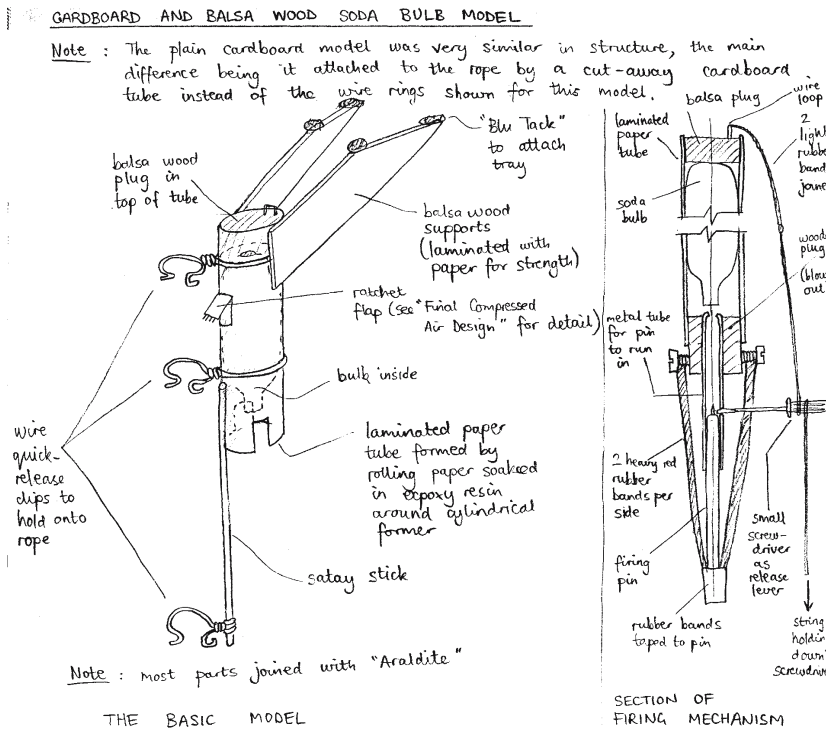 CARDBOARD AND BALSA WOOD SODA BULB MODEL
Note : The plain cardboard model was very similar in structure, the main
difference being it attached to the rope by a cut-away cardboard
tube instead of the wire rings shown for this model.
balsa wood
plug in
top of tube
"Blu Tack"
to attach
tray
balsa wood
supports
(laminated with
paper for strength)
ratchet
flap (see "Final Compressed
Air Design" for detail)
bulb inside
wire
quick-
release
clips to
hold onto
rope
laminated paper
tube formed by
rolling paper soaked
in epoxy resin
around cylindrical
former
satay stick
Note : most parts joined with "Araldite"
THE BASIC MODEL
balsa plug
wire
loop
laminated
paper
tube
2
light
rubber
band
joine
soda
bulb
wood
plug
(blow
out
metal tube
for pin
to run
in
2 heavy red
rubber
bands per
side
small
screw-
driver
as
release
lever
firing
pin
rubber bands
taped to pin
string
holdin
down
screwdrive
SECTION OF
FIRING MECHANISM